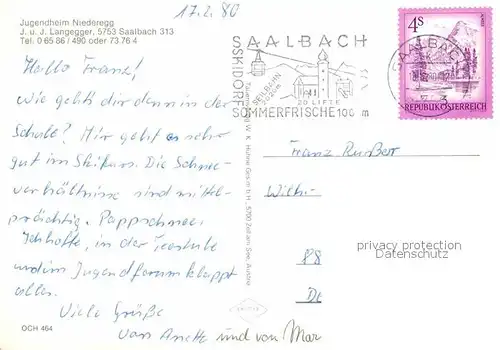 Jugendheim Niederegg
J. u. J. Langegger, 5753 Saalbach 313
Tel. 0 65 86 / 490 oder 73 76 4
17.2.80
Hallo Franz!
Wie geht's dir denn in der
Schule? Mir geht es sehr
gut im Skikurs. Die Schnee-
verhältnisse sind mittel-
prächtig. Pappschnee.
Ich hoffe, in der Teestube
und im Jugendforum klappt
alles.
Viele Grüße
von Anette und von Mar
OCH 464
SAALBACH
SKIDORF
SEILBAHN
2020m
20 LIFTE
SOMMERFRISCHE 1003 m
4 S
REPUBLIK ÖSTERREICH
SAALBACH
W. K. Hühne Ges.m.b.H., 5700 Zell am See, Austria
Franz
Wilh.-
privacy protection
Datenschutz